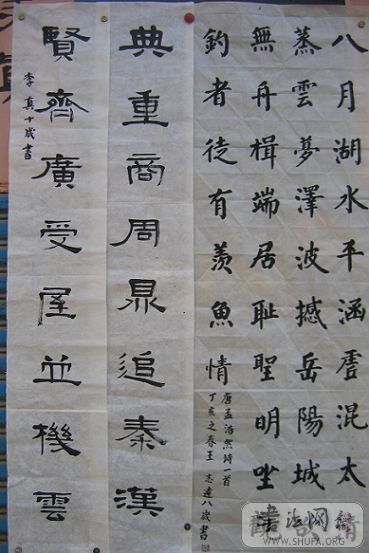 八月湖水平涵虛混太
蒸雲夢澤波撼岳陽城
無舟楫端居耻聖明坐
釣者徒有羨魚情
唐孟浩然詩一首
丁亥之春王志達八歲書
典重商周鼎追秦漢
賢齊廣受屋並機雲
李真十歲書
書法网
WWW.SHUFA.ORG